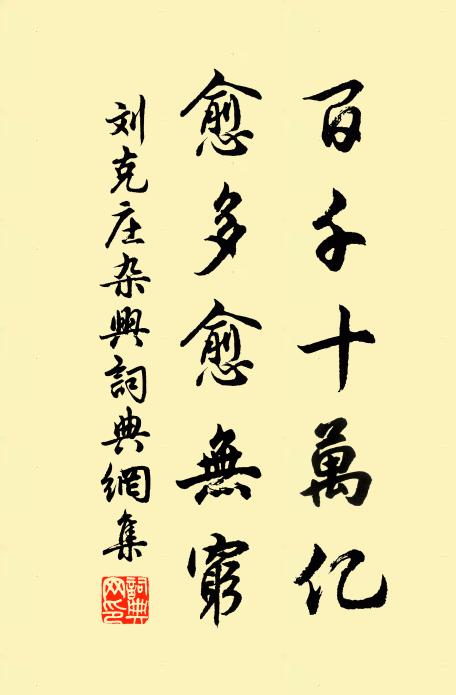 百千十萬亿
愈多愈無窮
刘克庄杂興詞典網集
詞典网印